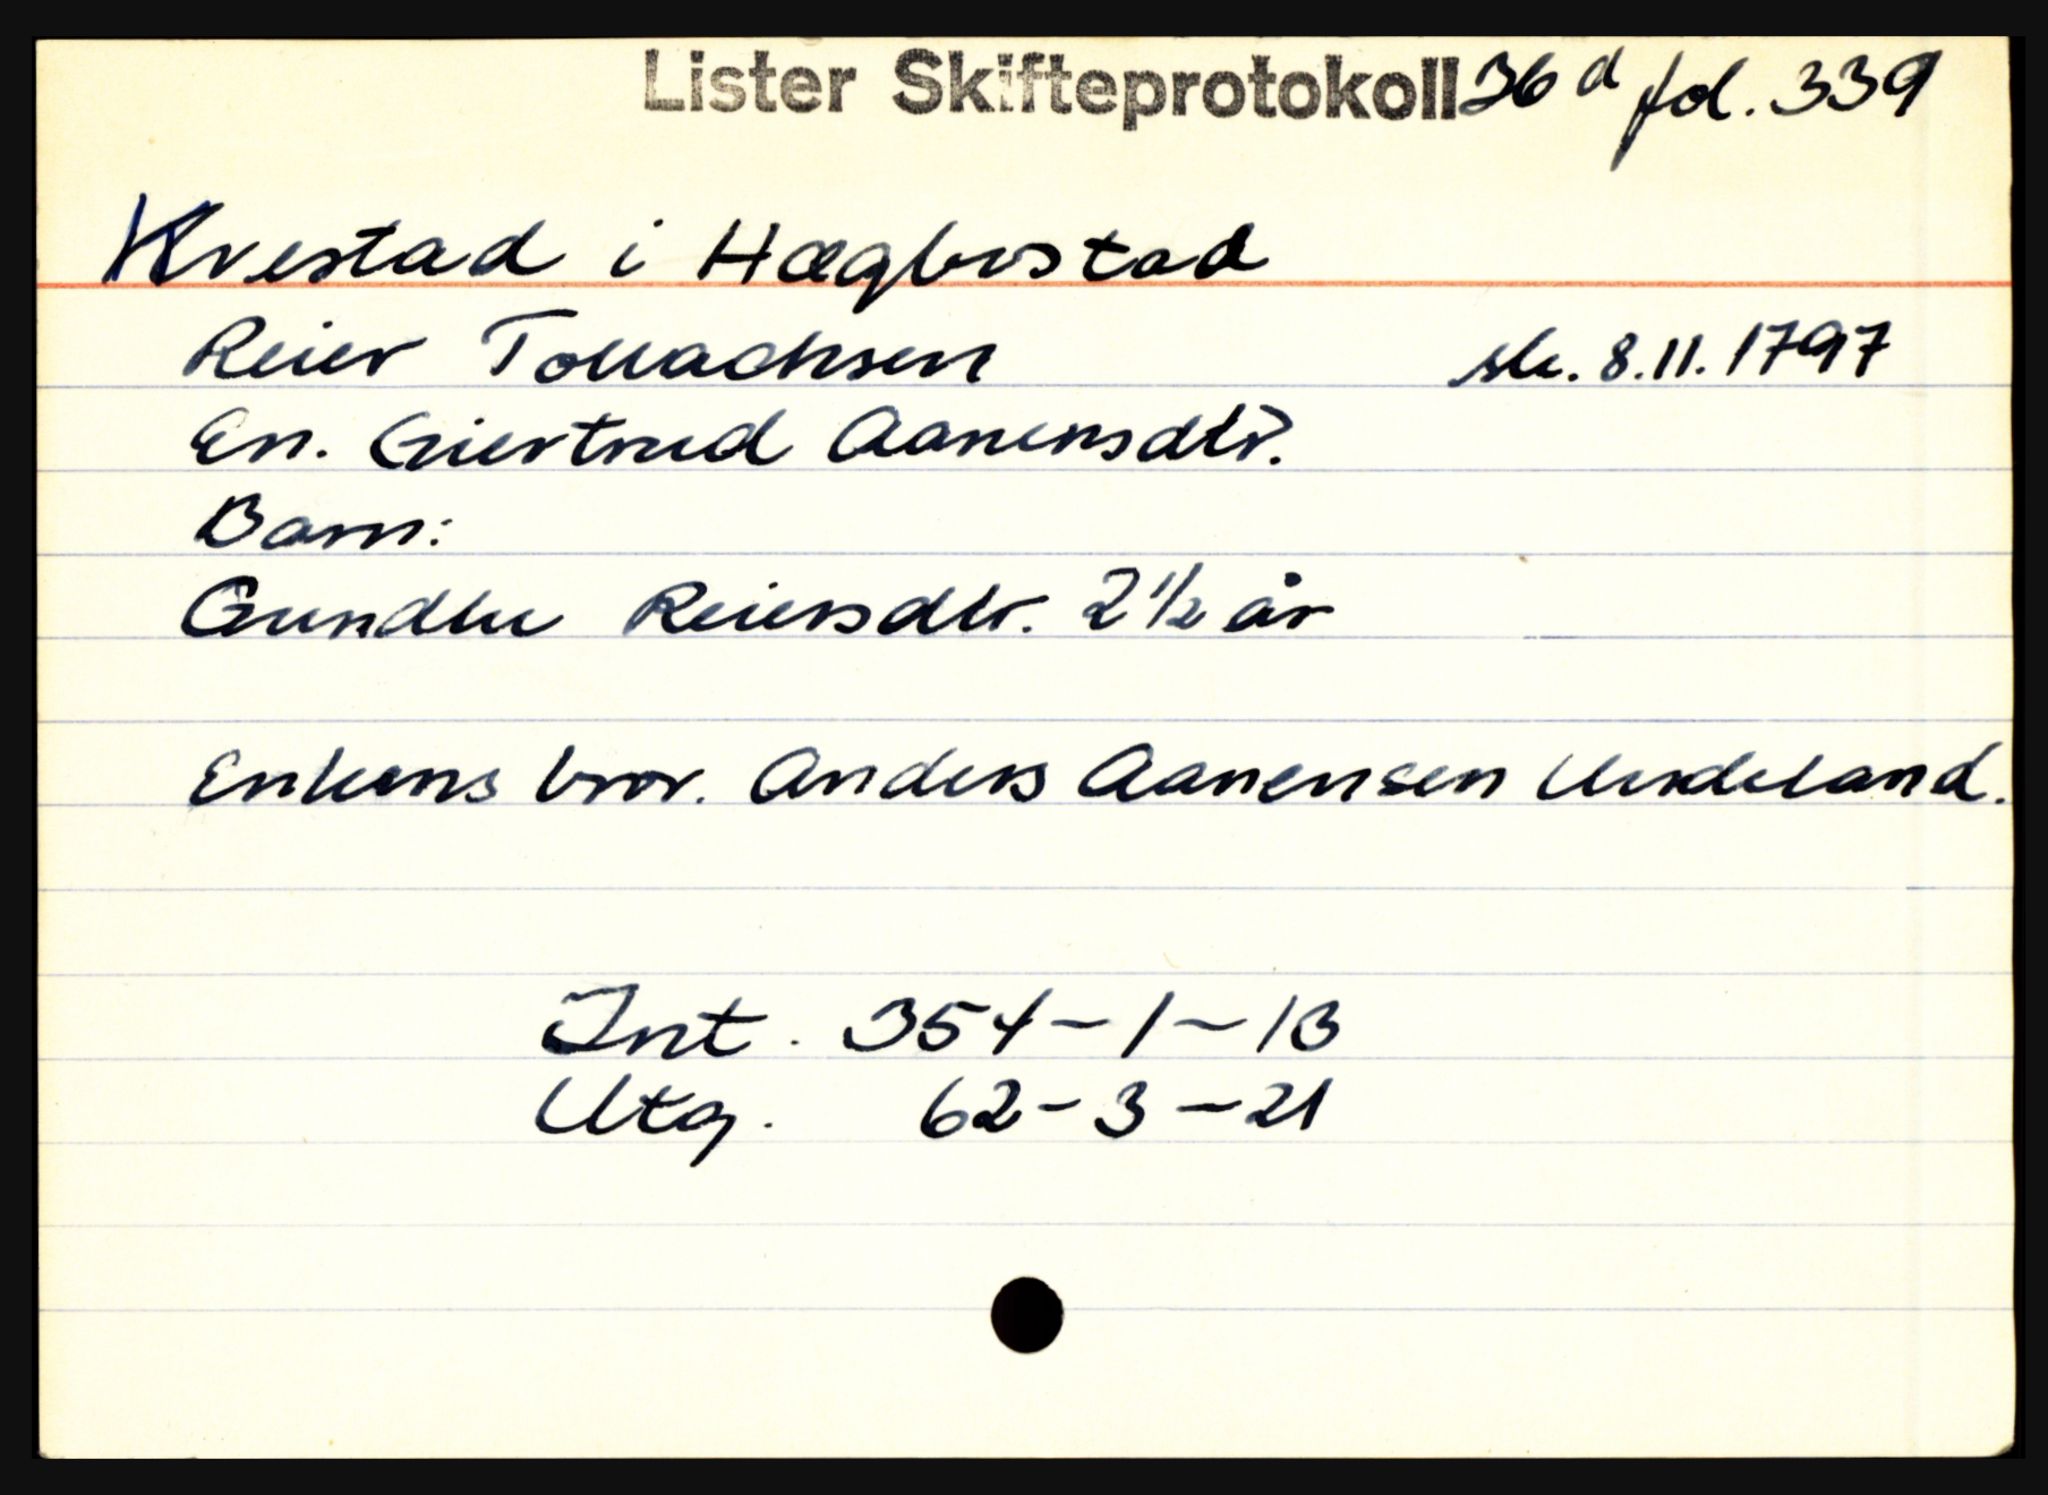 Lister Skifteprotokoll 36 d fol. 339
Kvestad i Hægbostad
Reier Tollachsen sk. 8.11.1797
En. Giertrud Aanensdtr.
Barn:
Gundhe Reiersdtr. 2 1/2 år
Enkens bror. Anders Aanensen Undeland.
Int. 354-1-13
Utg. 62-3-21